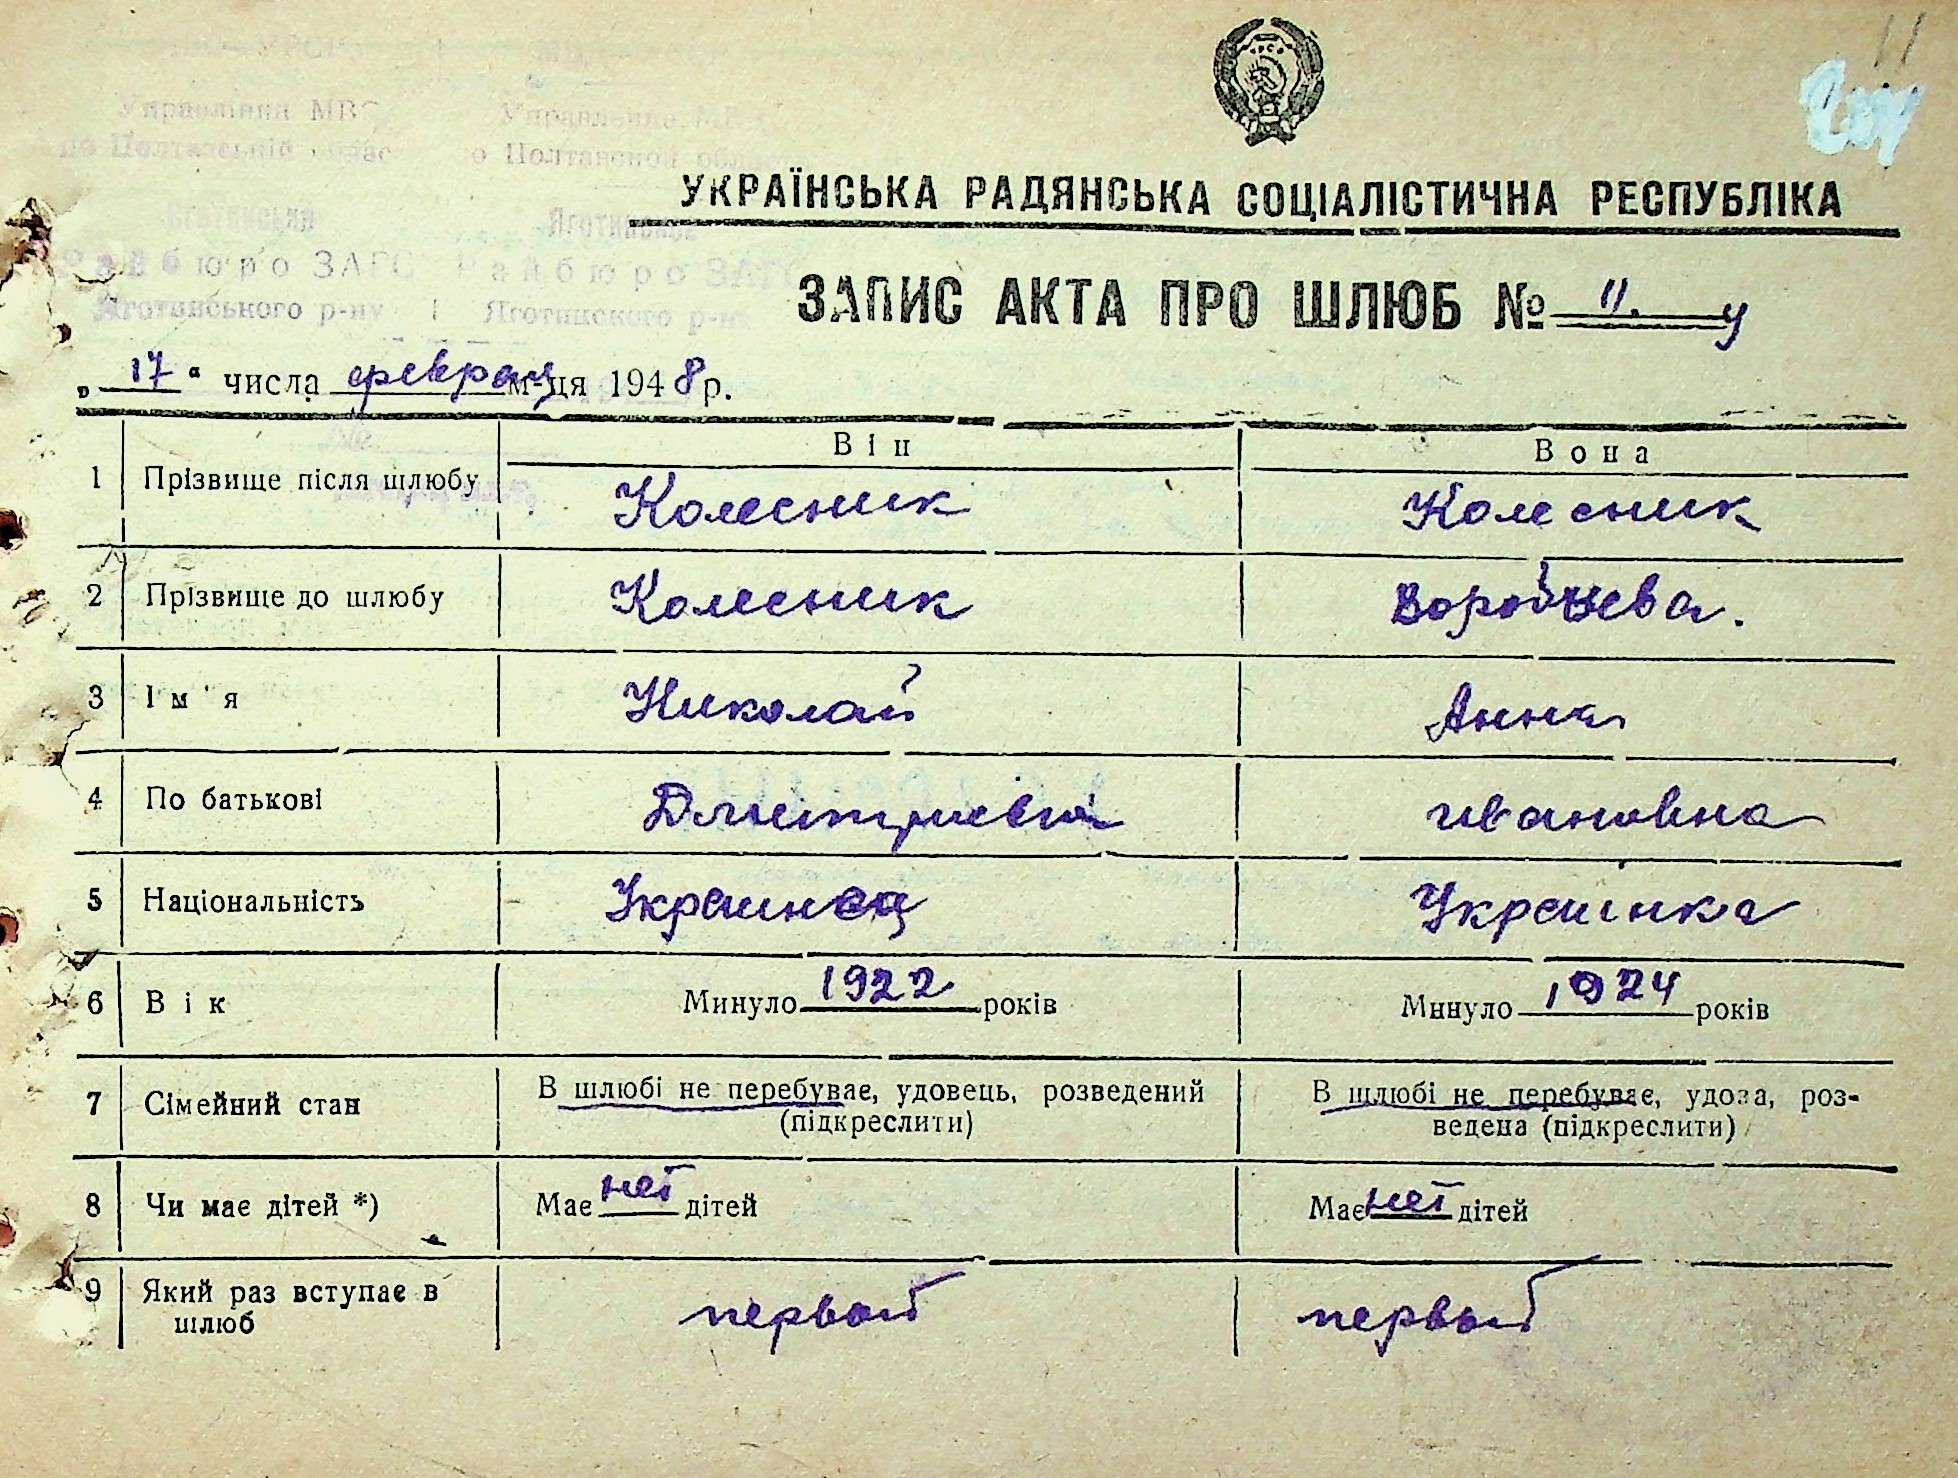 11
Управління МВС Управление МВ
по Полтавській облас по Полтавской облас
УКРАЇНСЬКА РАДЯНСЬКА СОЦІАЛІСТИЧНА РЕСПУБЛІКА
Яготинський Яготинское
Райбюро ЗАГС Райбюро ЗАГС
Яготинського р-ну Яготинского р-на
ЗАПИС АКТА ПРО ШЛЮБ № 11. у
„ 17 “ числа февраля м-ця 1948 р.
Він Вона
1 Прізвище після шлюбу Колесник Колесник
2 Прізвище до шлюбу Колесник Воробьева.
3 Ім'я Николай Анна
4 По батькові Дмитриевич Ивановна
5 Національність Украинец Украинка
6 Вік Минуло 1922 років Минуло 1924 років
7 Сімейний стан В шлюбі не перебуває, удовець, розведений В шлюбі не перебуває, удова, роз-
(підкреслити) ведена (підкреслити)
8 Чи має дітей *) Має нет дітей Має нет дітей
9 Який раз вступає в первый первый
шлюб